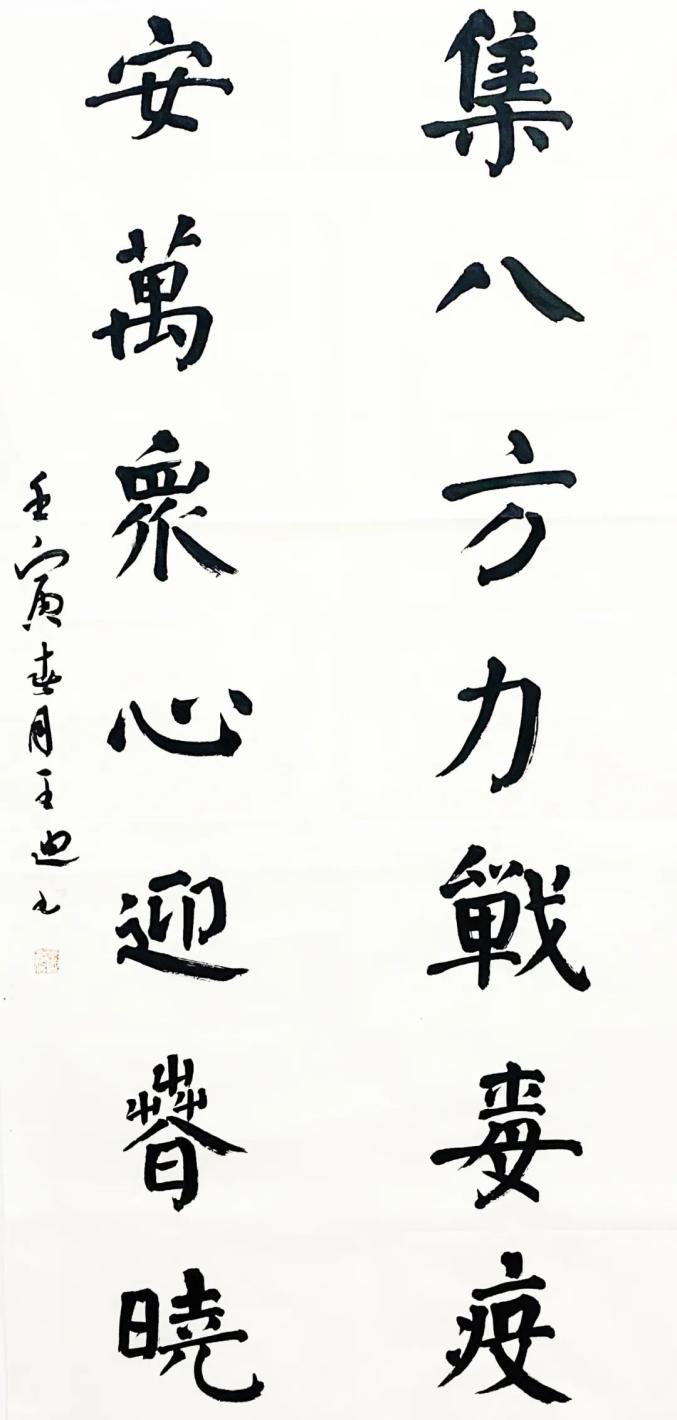 集八方力戰毒疫
安萬眾心迎春曉
壬寅春月王迪书